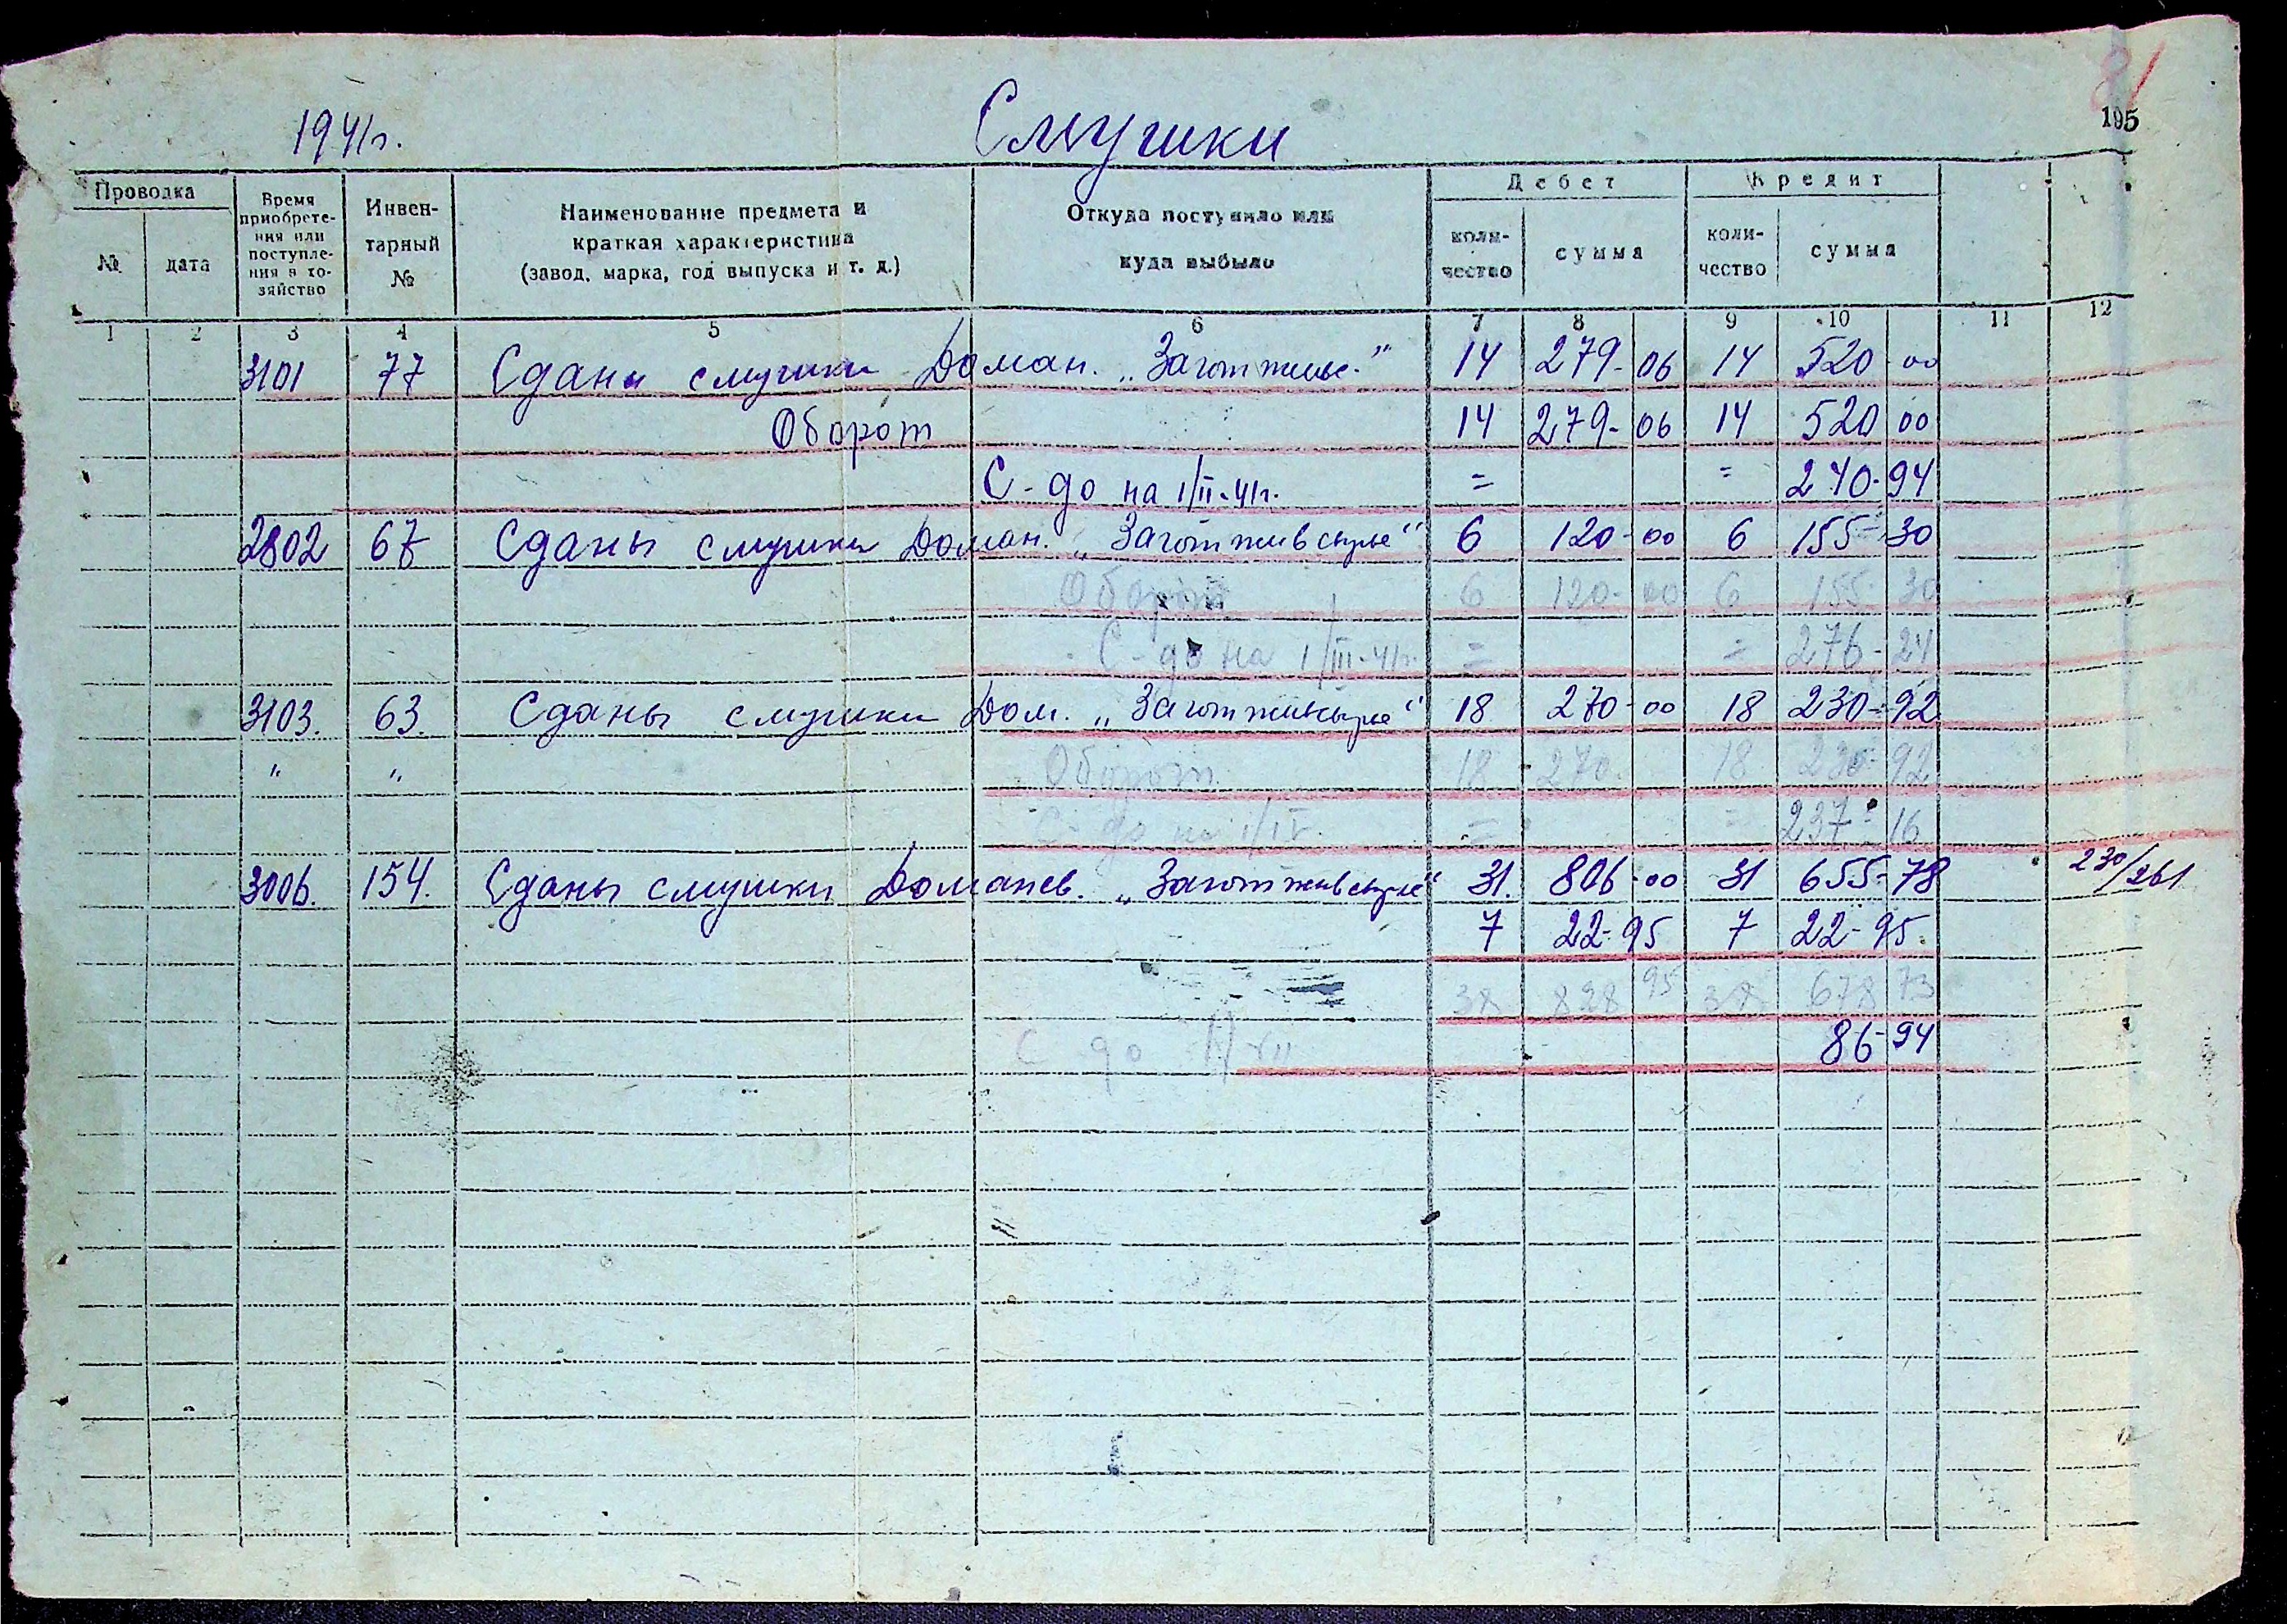 81
195
1941г. Смушки
Проводка
№ дата
Время приобрете-
ния или
поступле-
ния в хо-
зяйство
Инвен-
тарный
№
Наименование предмета и
краткая характеристика
(завод, марка, год выпуска и т. д.)
Откуда поступило или
куда выбыло
Дебет
коли-
чество
сумма
Кредит
коли-
чество
сумма
1 2 3 4 5 6 7 8 9 10 11 12
3101 77 Сданы смушки Доман. „Заготживс.“ 14 279-06 14 520-00
Оборот 14 279-06 14 520 00
С-до на 1/II-41г. = = 240-94
2802 67 Сданы смушки Доман. „Заготживсырье“ 6 120-00 6 155-30
Оборот 6 120-00 6 155-30
С-до на 1/III-41г. = = 276-24
3103. 63. Сданы смушки Дом. „Заготживсырье“ 18 270-00 18 230-92
" " Оборот 18 270- 18 230-92
С-до на 1/IV. = = 237-16
3006. 154. Сданы смушки Доманев. „Заготживсырье“ 31. 806-00 31 655-78 230/261
7 22-95 7 22-95.
38 828 95 38 678 73
С-до 1/VII 86-94